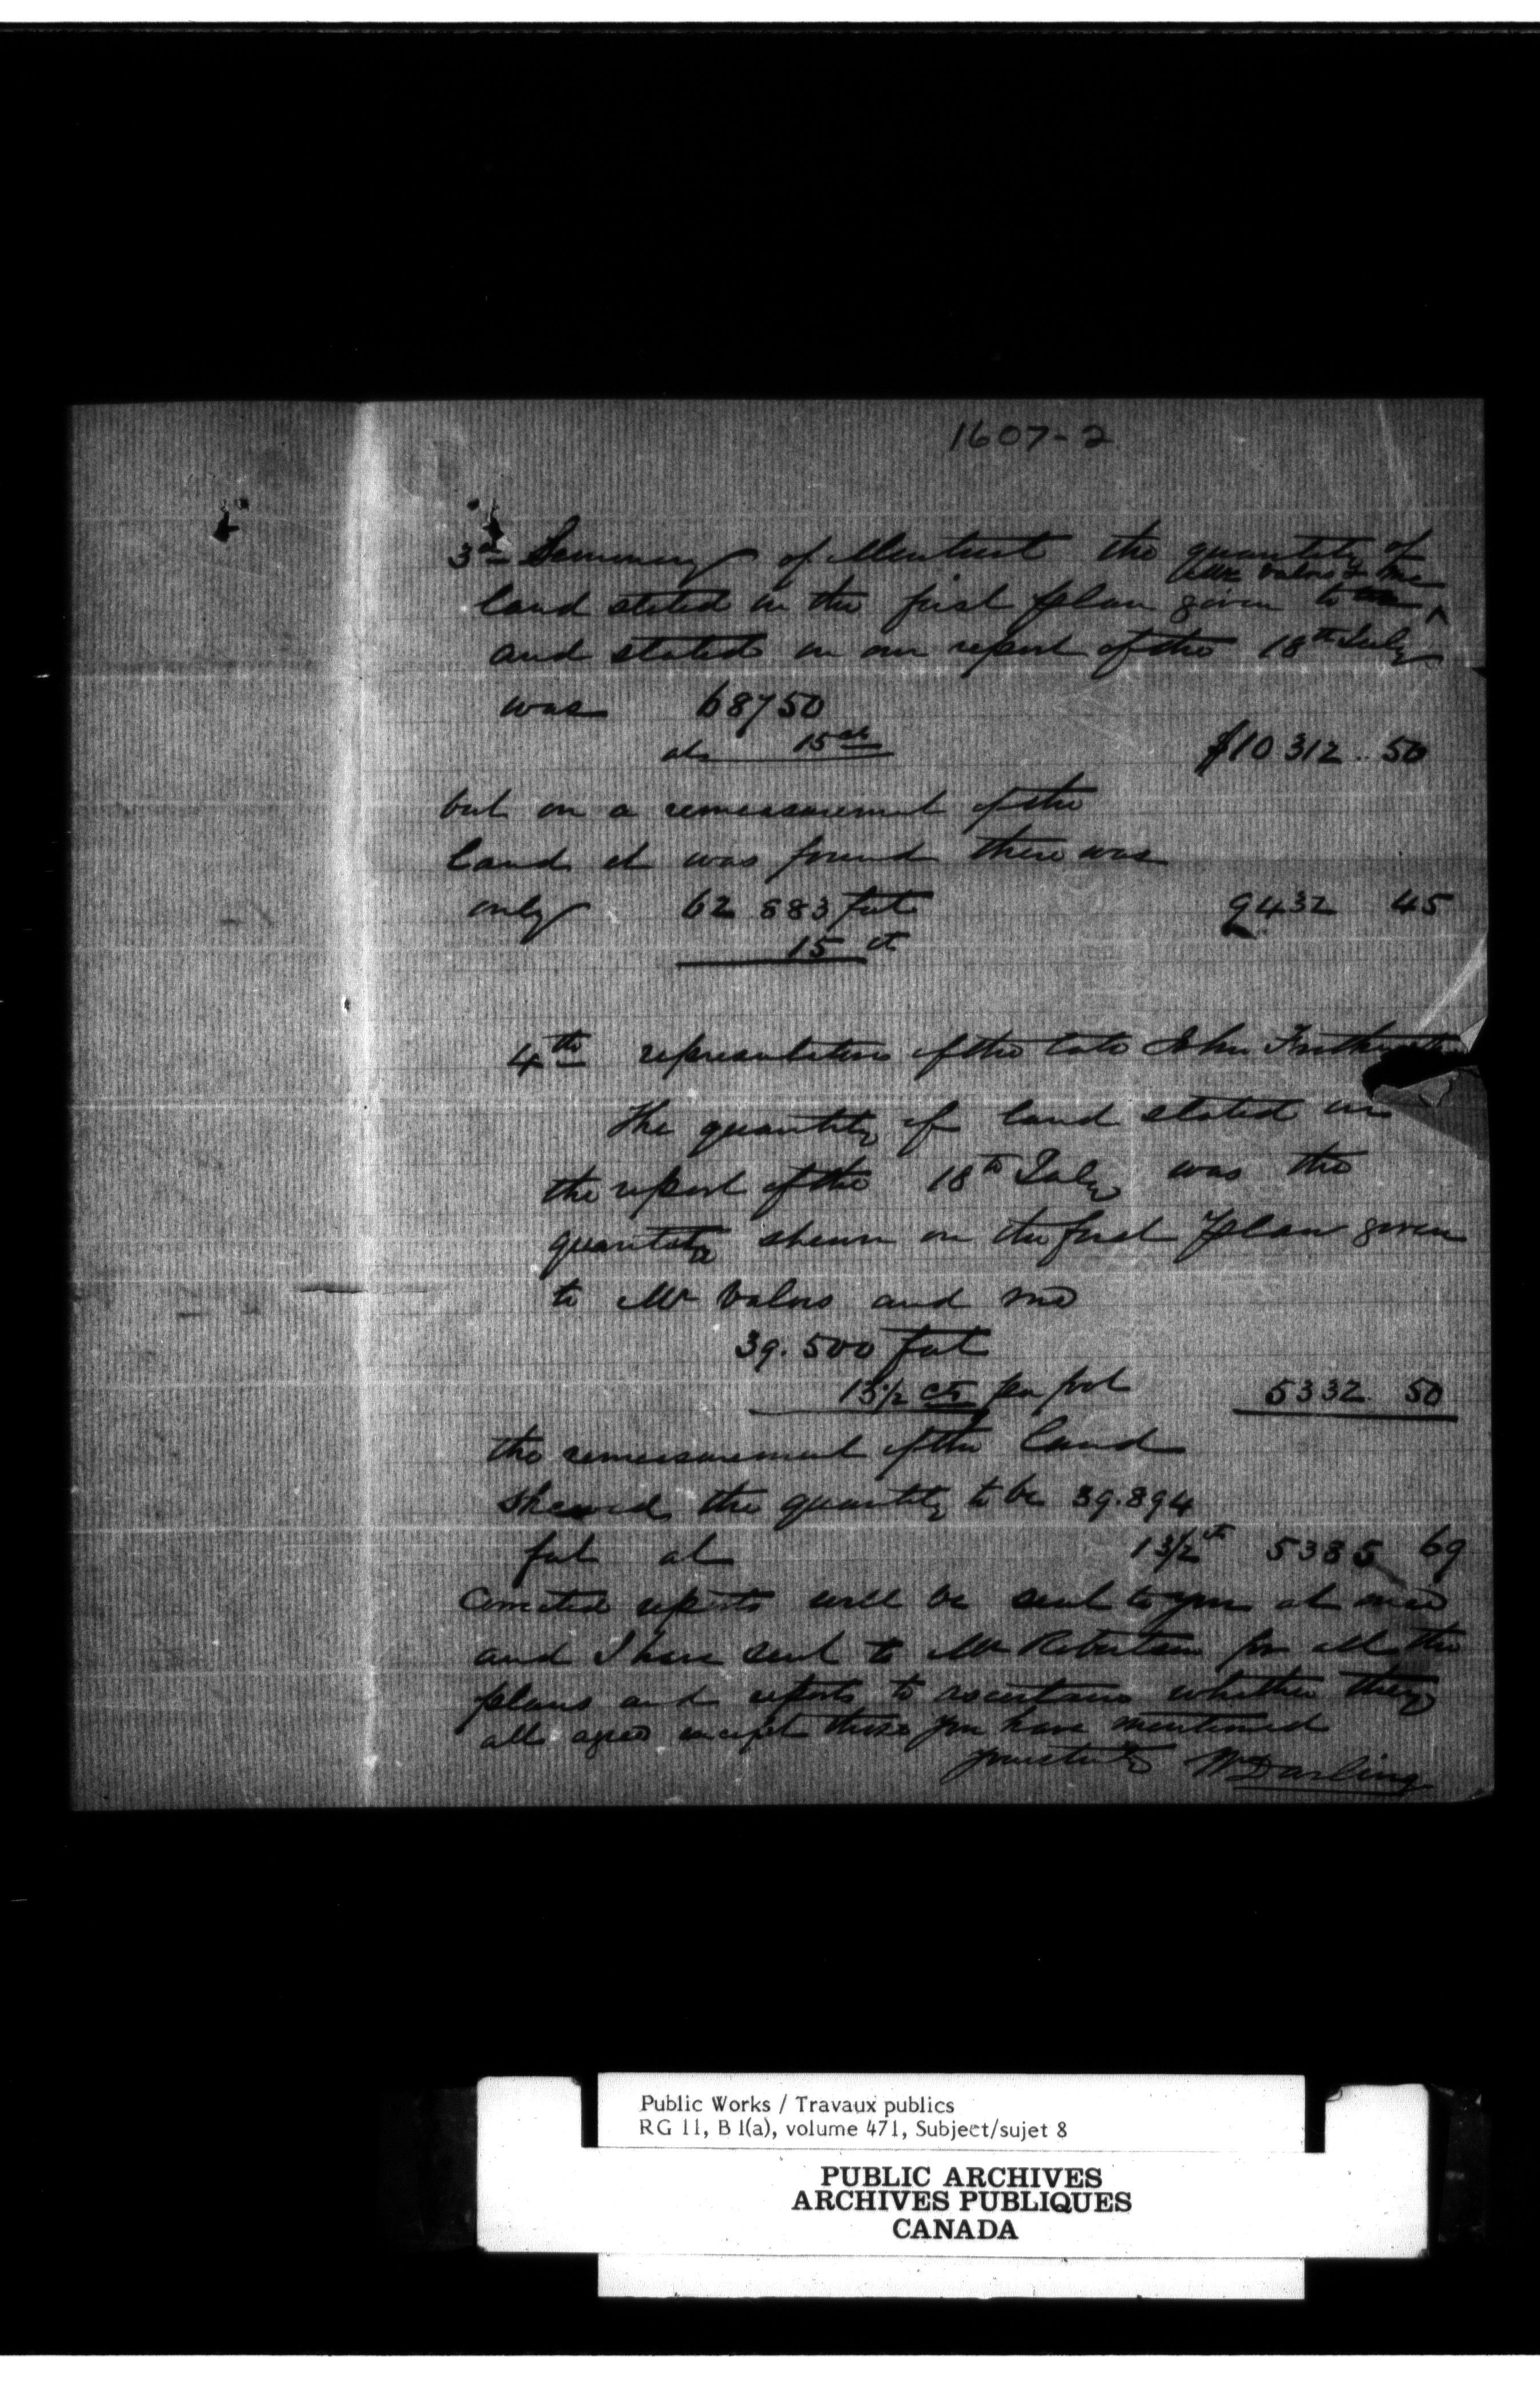 1607-2
3d Seminary of Montreal the quantity of
Mr Valois & me
land stated in the first plan given to
and stated in our report of the 18th July
was 68750
at 15 cts $10 312. 50
but on a remeasurement of the
land it was found there was
only 62 883 feet 9432 45
15 ct
4th representatives of the late John
The quantity of land stated in
the report of the 18th July was the
quantity shewn on the first plan given
to Mr Valois and me
39.500 feet
13½ cts per foot 5332 50
the remeasurement of the land
shewed the quantity to be 39.894
feet at 13½ cts 5385 69
Corrected reports will be sent to you at once
and I have sent to Mr Robertson for all the
plans and reports to ascertain whether they
all agree except those you have mentioned
yours truly Wm Darling
Public Works / Travaux publics
RG 11, B 1(a), volume 471, Subject/sujet 8
PUBLIC ARCHIVES
ARCHIVES PUBLIQUES
CANADA